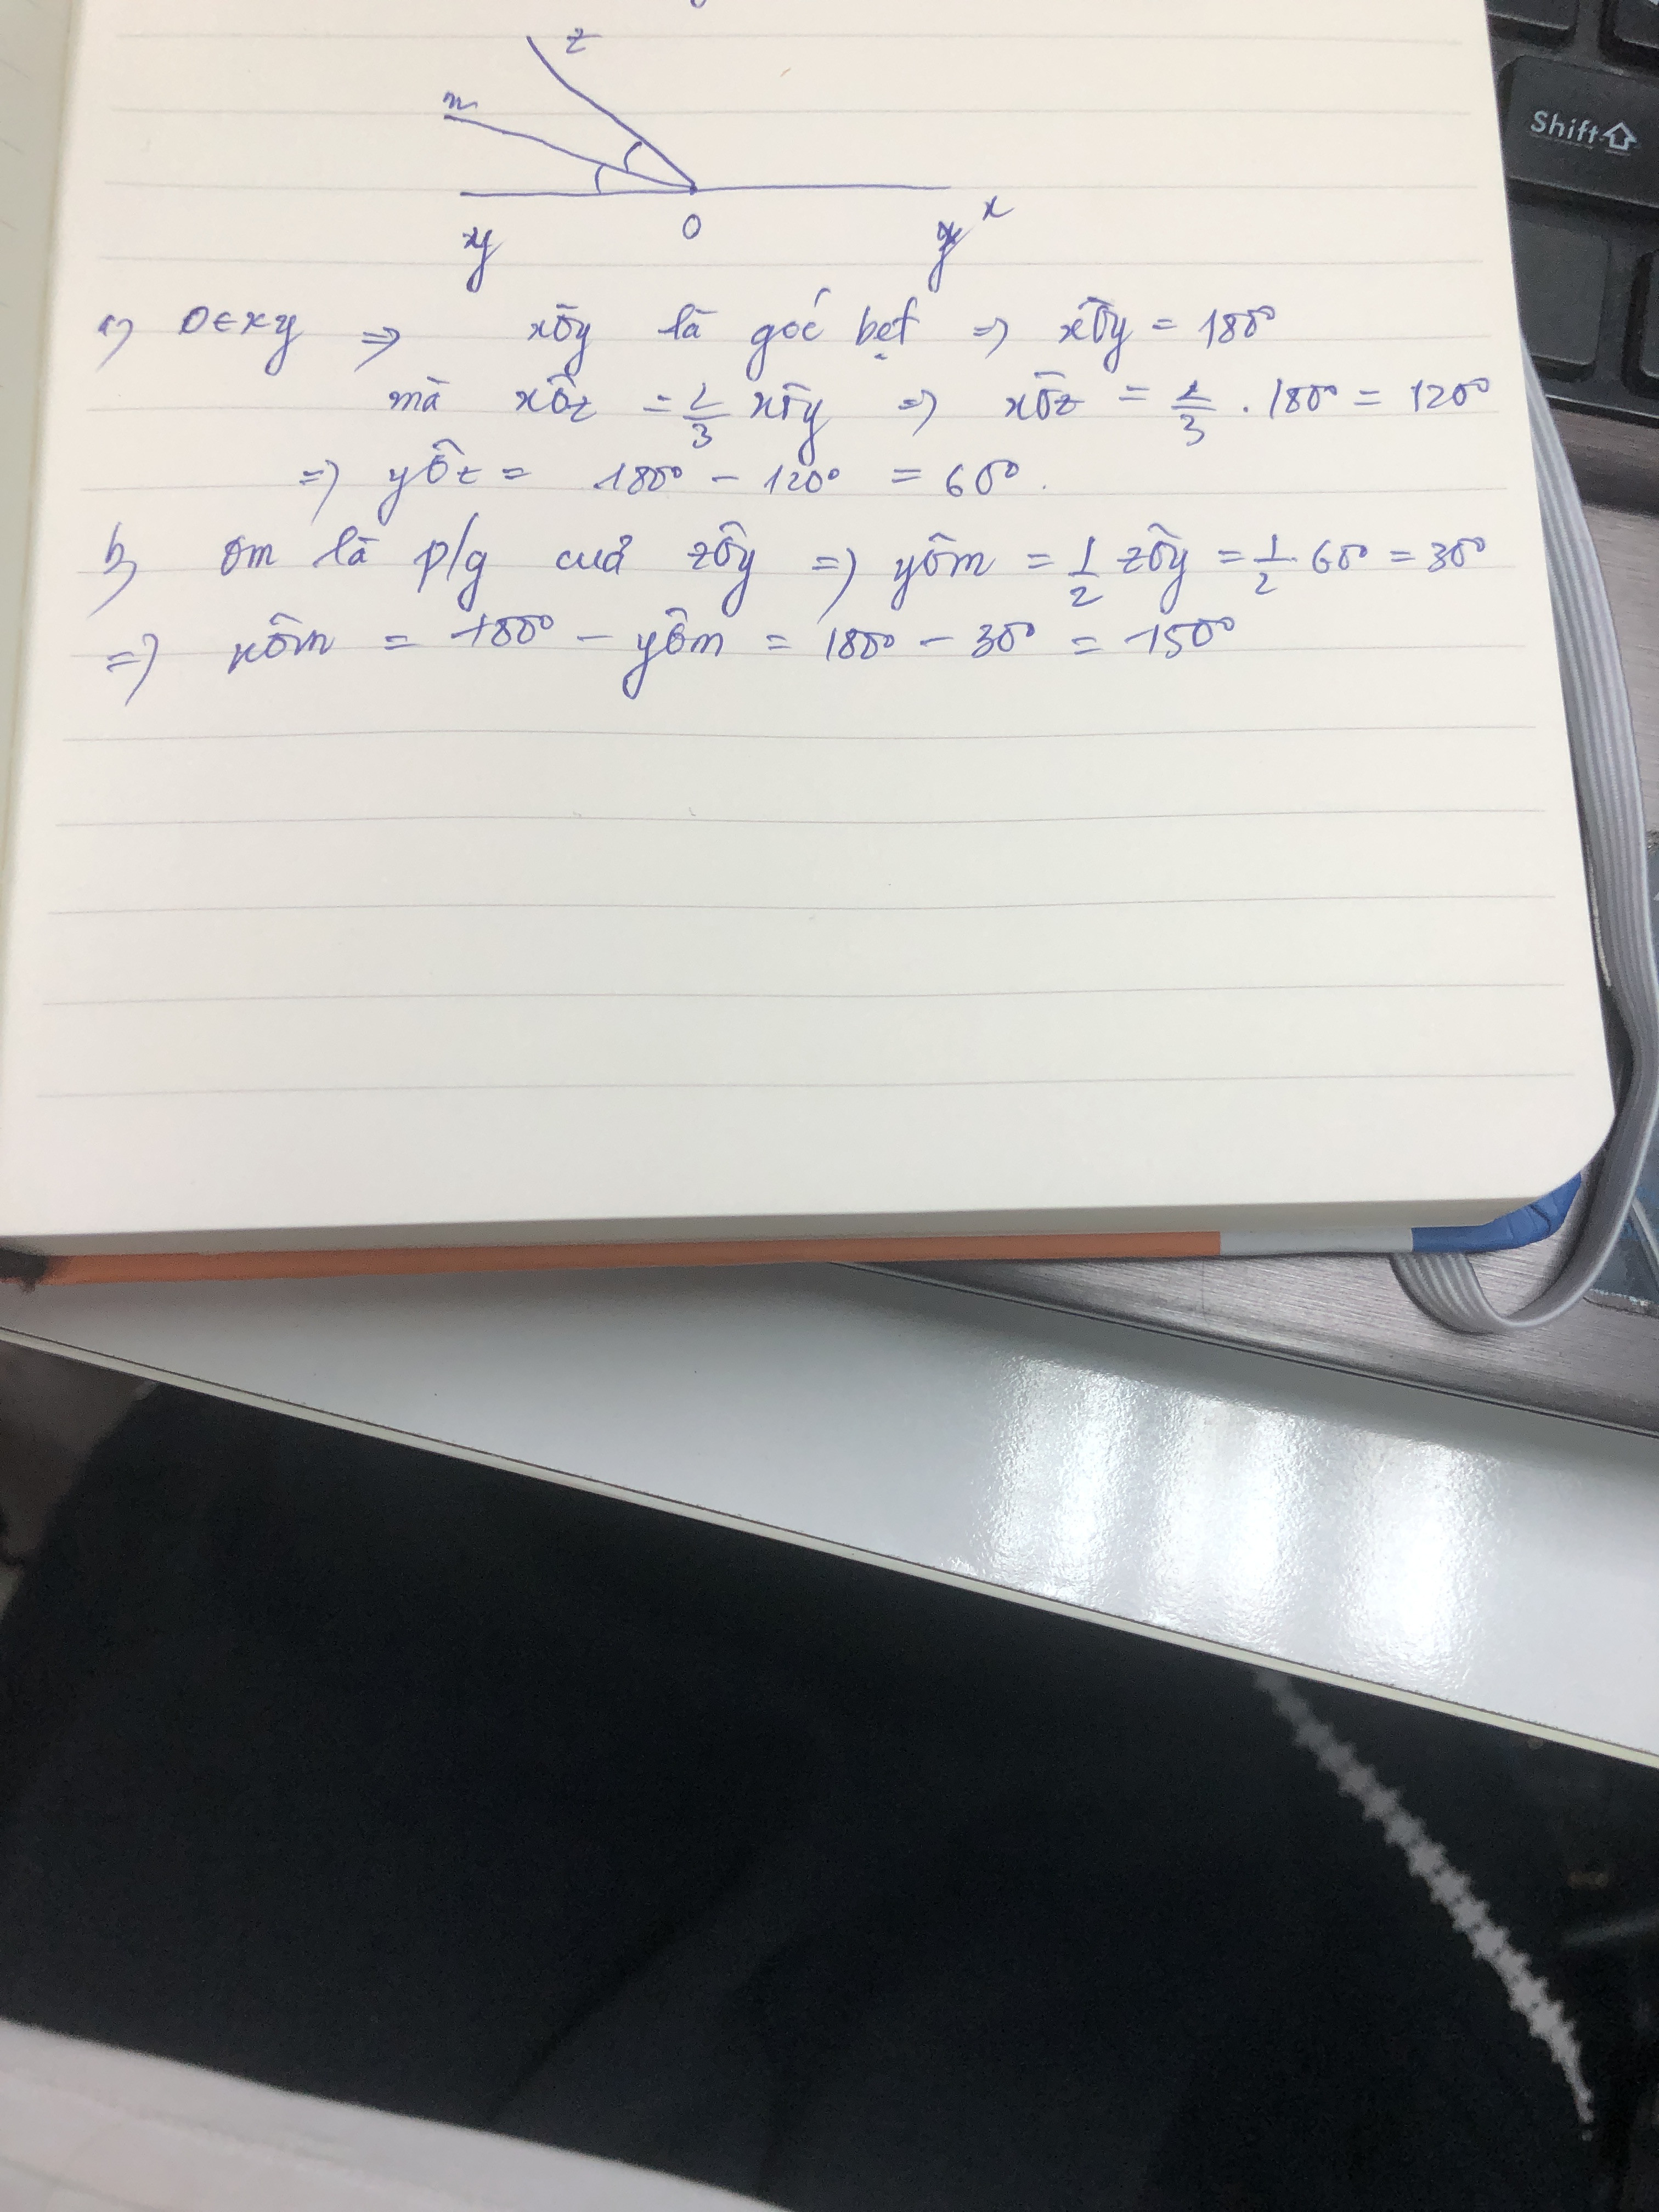 z
m
y O x
a) O ∈ xy ⇒ xÔy là góc bẹt ⇒ xÔy = 180°
mà xÔz = 2/3 xÔy ⇒ xÔz = 2/3 . 180° = 120°
⇒ yÔz = 180° - 120° = 60°.
b) Om là p/g của zÔy ⇒ yÔm = 1/2 zÔy = 1/2 . 60° = 30°
⇒ xÔm = 180° - yÔm = 180° - 30° = 150°
Shift